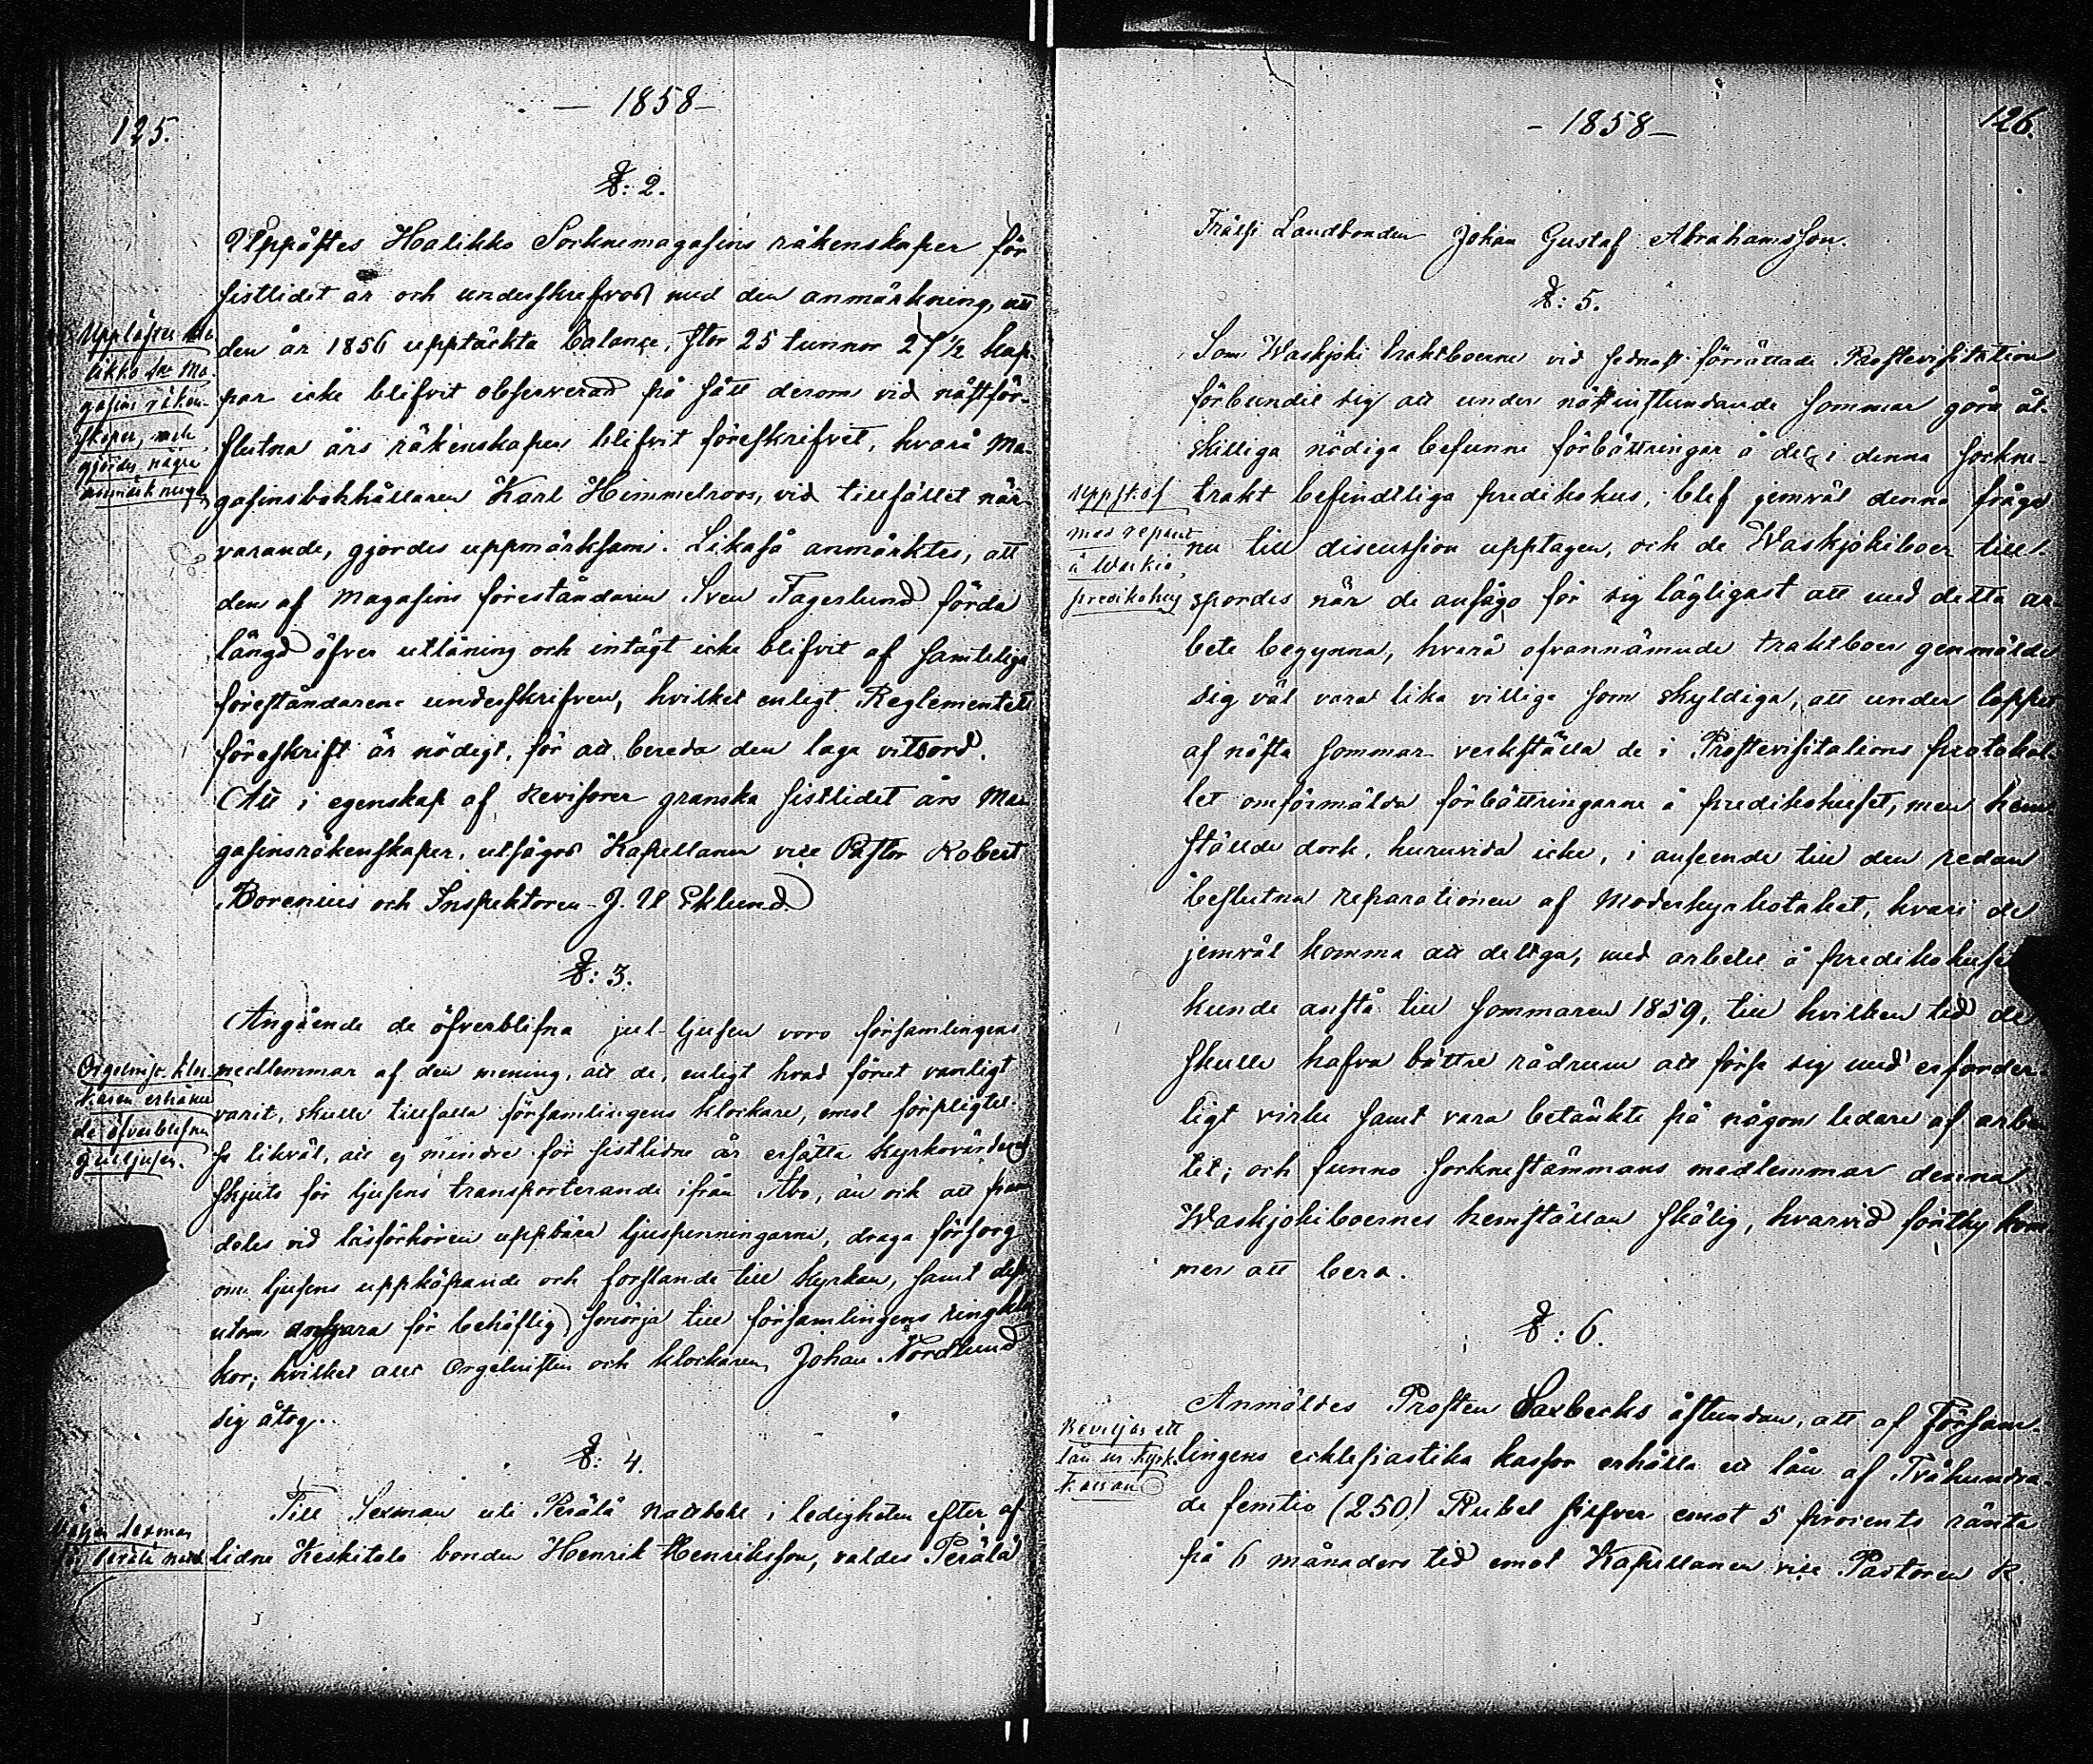 125.
— 1858 —
§: 2.
Upplästes Halikko Socknemagasins räkenskaper för
sistlidet år och underskrefvos med den anmärkning, att
den år 1856 upptäckta balance, stor 25 tunnor 27 1/2 kap-
par icke blifvit observerad på sätt derom vid nästför-
flutna års räkenskaper blifvit föreskrifvet, hvarå Ma-
gasinsbokhållaren Karl Heimmelroos, vid tillfället när-
varande, gjordes uppmärksam. Likaså anmärktes, att
den af Magasins föreståndaren Sven Fagerlund förda
längd öfver utlåning och intägt icke blifvit af samteliga
föreståndarene underskrifven, hvilket enligt Reglementets
föreskrift är nödigt, för att bereda den laga vitsord.
Att i egenskap af Revisorer granska sistlidet års Ma-
gasinsräkenskaper, utsågos Kapellanen vice Pastor Robert
Borenius och Inspektoren J. U Eklund.
Upplästes Ha-
likko Sn Ma-
gasins räken-
skaper, och
gjordes några
anmärkningar
§: 3.
Angående de öfverblifna jul-ljusen voro församlingens
medlemmar af den mening, att de, enligt hvad förut vanligt
varit, skulle tillfalla församlingens klockare, emot förpligtel-
se likväl, att ej mindre för sistlidne år ersätta Kyrkovärden
skjuts för ljusens transporterande ifrån Åbo, än ock att fram-
deles vid läsförhören uppbära ljuspenningarna, draga försorg
om ljusens uppköpande och forslande till kyrkan, samt dess-
utom ansvara för behöflig smörja till församlingens ringkloc-
kor; hvilket allt Orgelnisten och klockaren Johan Nordlund
sig åtog.
Orgelnist-kloc-
karen erhåller
de öfverblefna
julljusen.
§: 4.
Till Sexman uti Perälä Nattbohl i ledigheten efter af-
lidne Keskitalo bonden Henrik Henriksson, valdes Perälä
Väljes Sexman
för Perälä natt.
126.
— 1858 —
Frälse Landbonden Johan Gustaf Abrahamsson.
§: 5.
Som Waskjoki traktboerne vid sednast förrättade Prostevisitation
förbundit sig att under nästinstundande sommar göra åt-
skilliga nödiga befunne förbättringar å det i denna sockne-
trakt befindtliga predikohus, blef jemväl denna fråga
nu till discussion upptagen, och de Waskjokiboer till-
spordes när de ansågo för sig lägligast att med detta ar-
bete begynna, hvarå ofvannämnde traktboer genmälde
sig väl vara lika villiga som skyldiga, att under loppet
af nästa sommar verkställa de i Prostevisitations protokol-
let omförmälda förbättringarne å predikohuset, men hem-
ställde dock, huruvida icke, i anseende till den redan
beslutna reparationen af Moderkyrkotaket, hvari de
jemväl komma att deltaga, med arbetet å predikohuset
kunde anstå till sommaren 1859, till hvilken tid de
skulle hafva bättre rådrum att förse sig med erforder-
ligt virke samt vara betänkte på någon ledare af arbe-
tet; och funno Sockenstämmans medlemmar denna
Waskjokiboernes hemställan skälig, hvarvid förthy kom-
mer att bero.
Uppskof
med repara
å Waskio
predikohus
§: 6.
Anmäldes Prosten Saxbecks åstundan, att af Försam-
lingens ecklesiastika kassor erhålla ett lån af Tvåhundra-
de femtio (250) Rubel silfver emot 5 procents ränta
på 6 månaders tid emot Kapellanen vice Pastoren R.
Beviljas ett
lån ur kyrk-
kassan